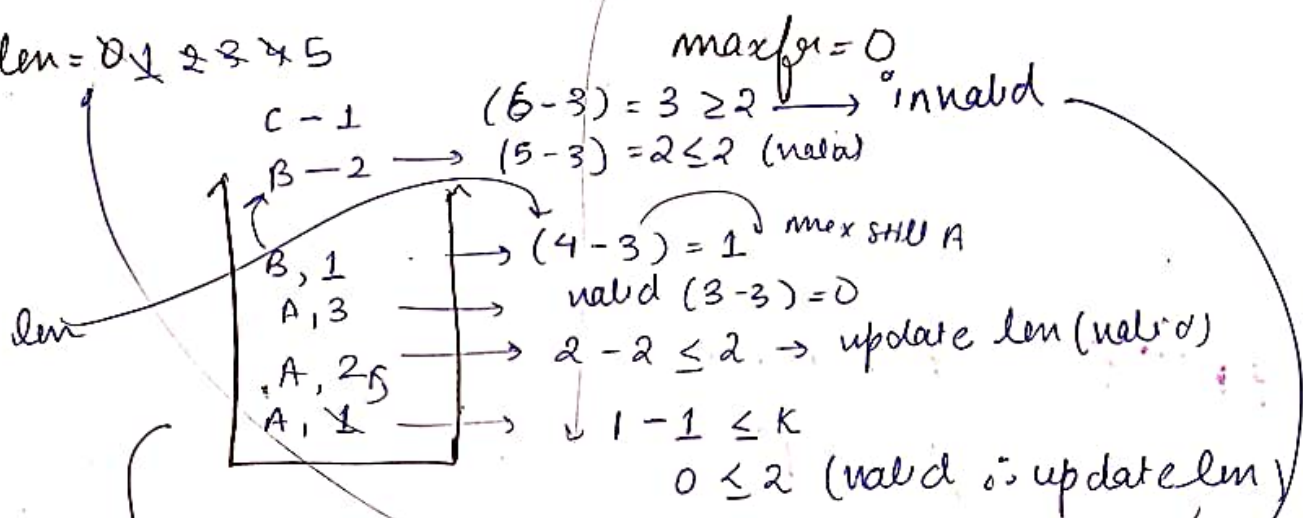 len = 0 1 2 3 4 5
maxfr = 0
C - 1 (6-3) = 3 ≥ 2 → invalid
B - 2 → (5-3) = 2 ≤ 2 (valid)
B, 1 → (4-3) = 1 max still A
A, 3 → valid (3-3) = 0
len
A, 2 → 2 - 2 ≤ 2 → update len (valid)
A, 1 → 1 - 1 ≤ K
0 ≤ 2 (valid ∴ update len)